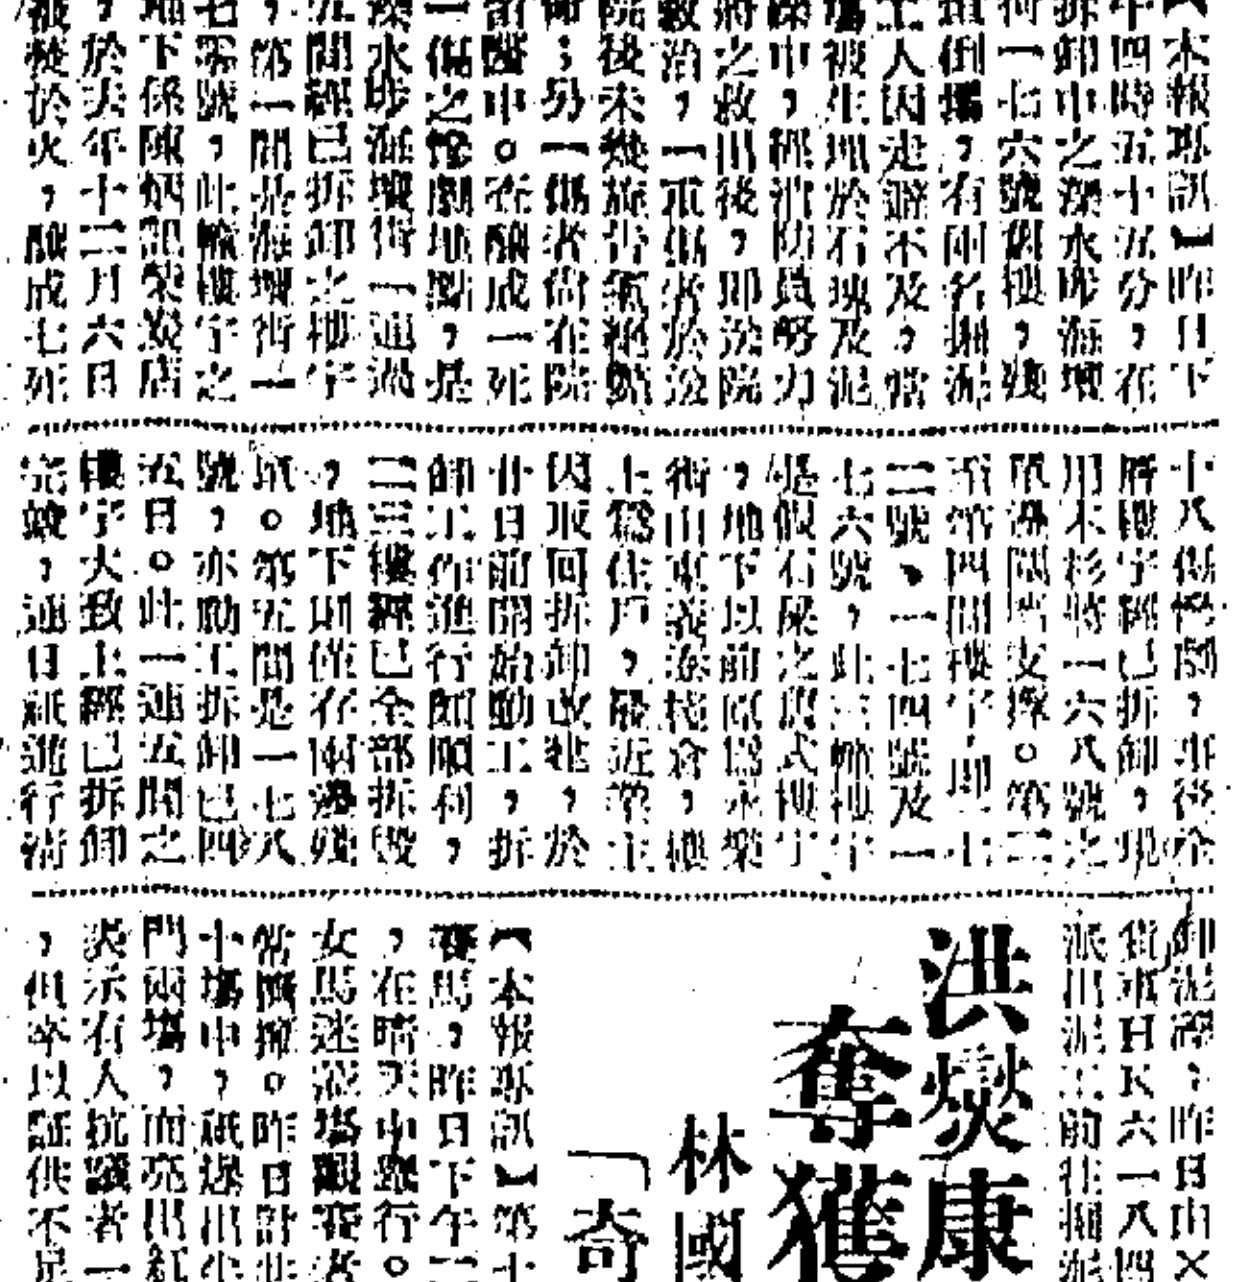 【本報專訊】昨日下
午四時五十五分，在
拆卸中之深水埗海壇
街一七六號舊樓，殘
垣倒塌，有兩名掘泥
工人因走避不及，當
場被生埋於石塊及泥
深中，經消防員努力
將之救出後，即送院
救治，一重傷者於送
院後未幾施告氣絕斃
命；另一傷者尚在院
留醫中。查釀成一死
一傷之慘劇地點，是
深水埗海壇街一連過
五間經已拆卸之樓宇
，第一間是海壇街一
七零號，此幢樓宇之
地下係陳炳記柴炭店
，於去年十二月六日
被焚於火，釀成七死
十八傷慘劇，事後全
層樓宇經已拆卸，現
用木杉將一六八號之
單邊隔牆支撐。第二
至第四間樓宇即一七
二號、一七四號及一
七六號，此三幢樓宇
是假石屎之舊式樓宇
，地下以前原為永樂
街山東義泰棧倉，樓
上為住戶，最近業主
因取回拆卸改建，於
廿日前開始動工，拆
卸工作進行頗順利，
二三樓經已全部拆毀
，地下則僅存兩邊殘
垣。第五間是一七八
號，亦動工拆卸已四
五日。此一連五間之
樓宇大致上經已拆卸
完竣，連日祇進行清
卸泥澤，昨日由×
貨車HK六一八四
派出泥工前往掘泥
洪燮康
奪獲
林國
「奇
【本報專訊】第十
賽馬，昨日下午一
，在晴天中舉行。
女馬迷蒞場觀賽者
當擠擁。昨日計共
十場中，祇爆出尘
門兩場，而亮出紅
表示有人抗議者一
，但卒以証供不足